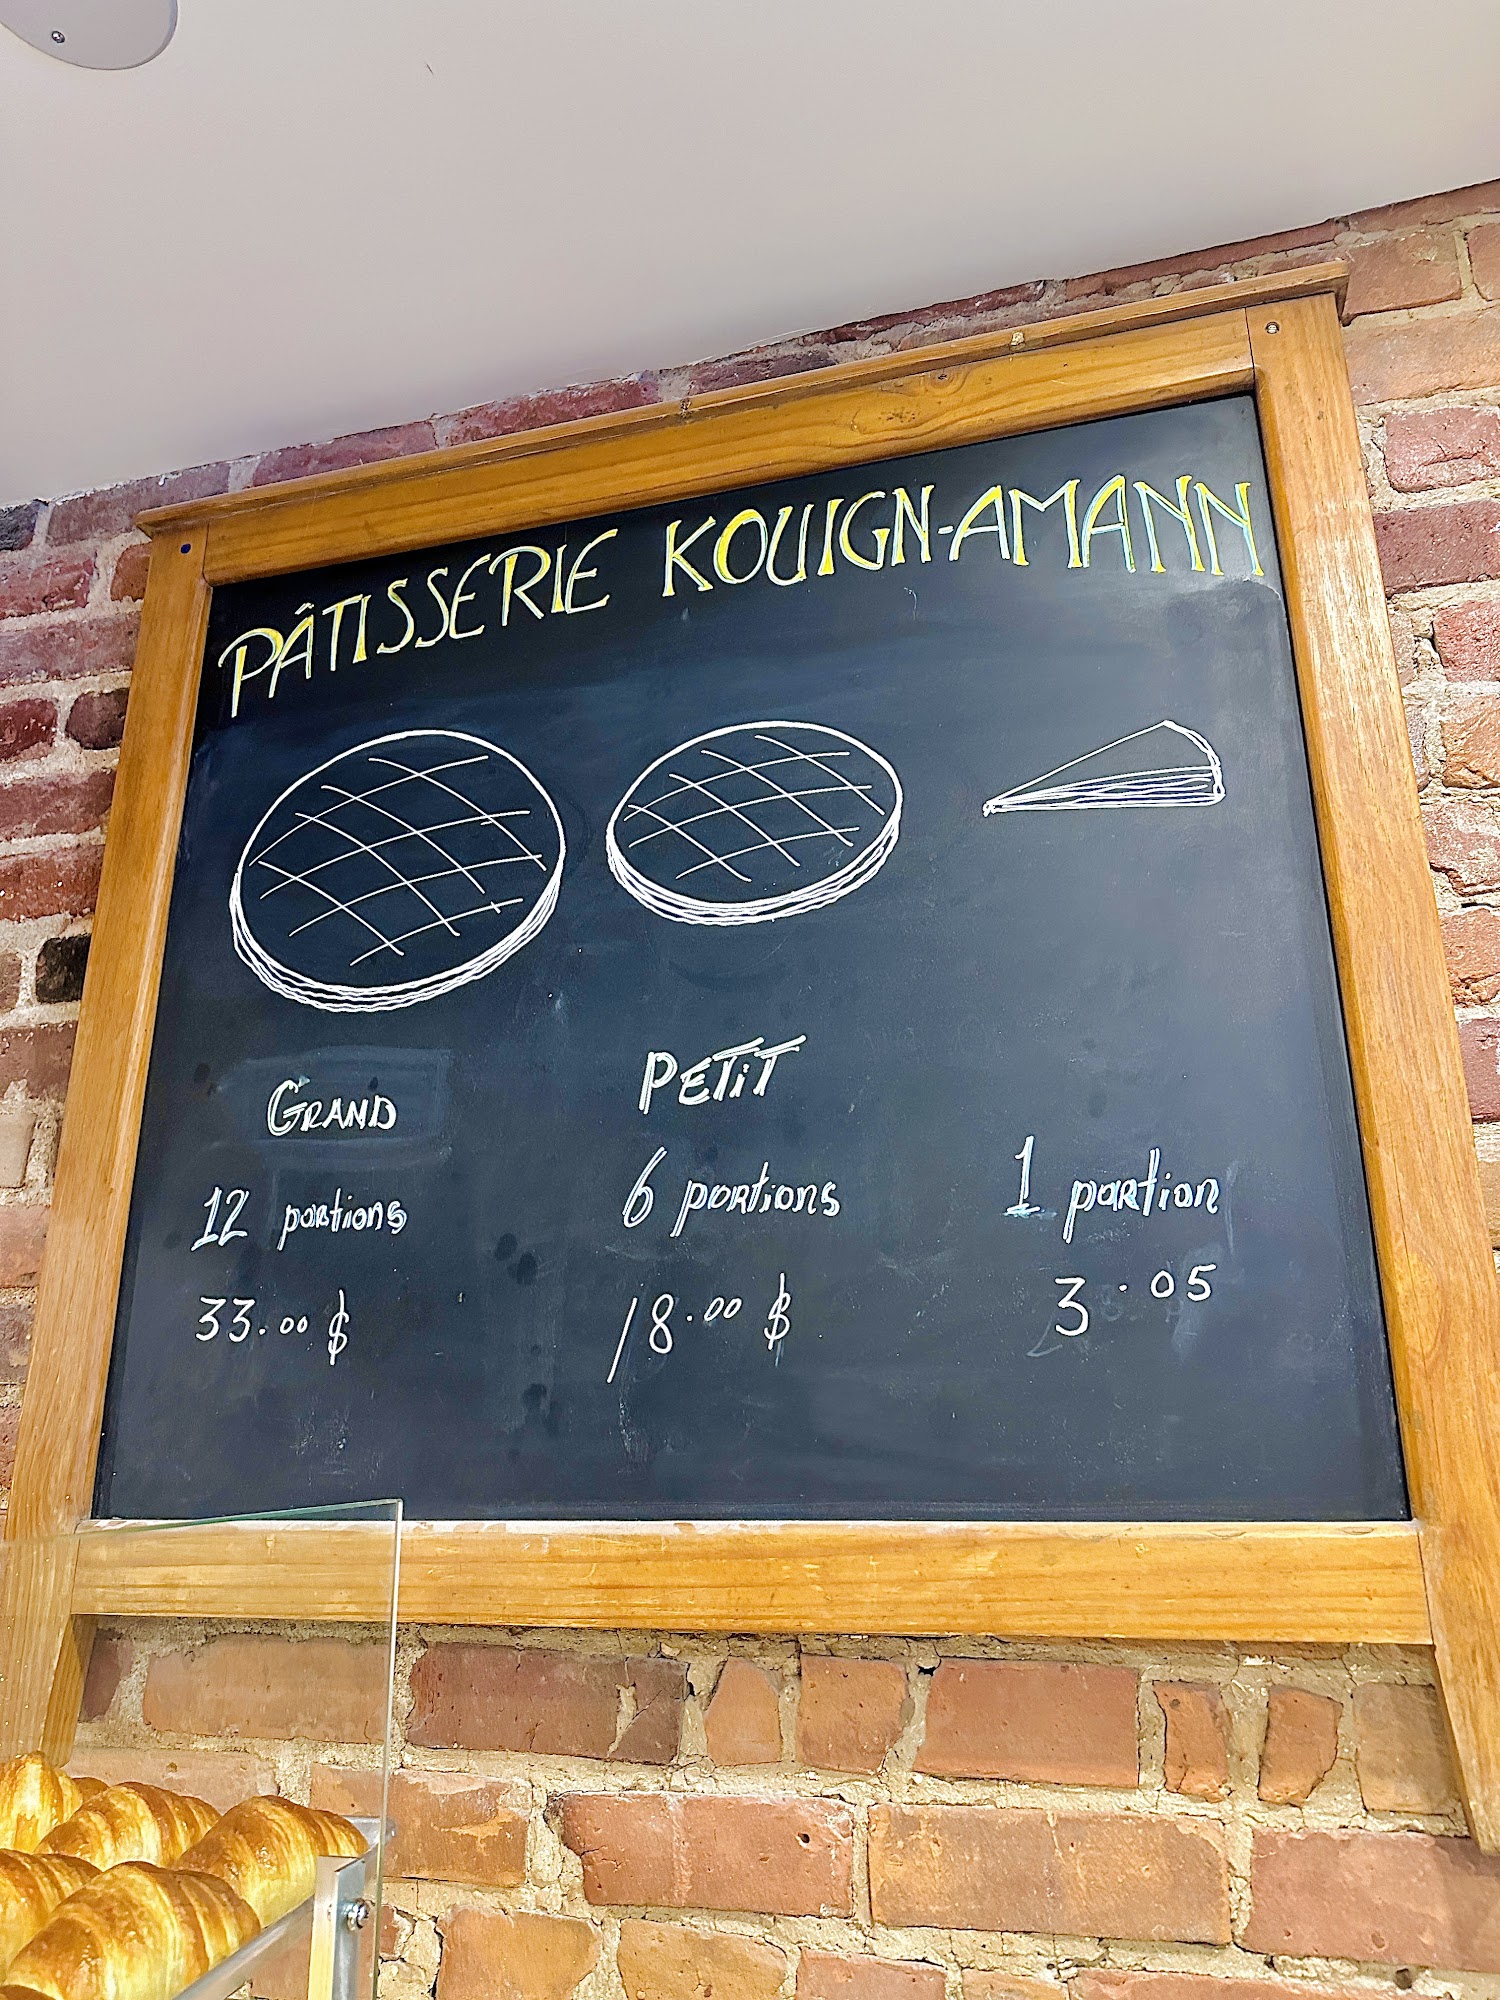 PÂTISSERIE KOUIGN-AMANN
GRAND
12 portions
33.00 $
PETIT
6 portions
18.00 $
1 portion
3.05